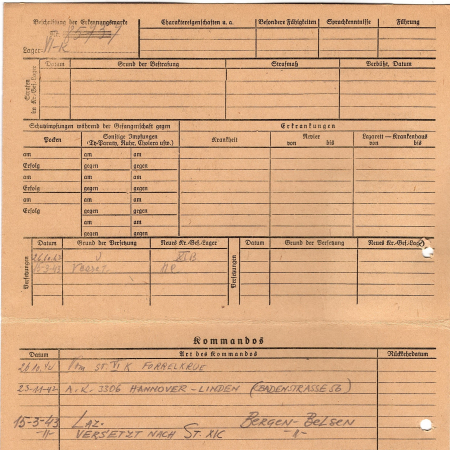 Beschriftung der Erkennungsmarke
Nr.
Lager: VI-K
Charaktereigenschaften u. a.
Besondere Fähigkeiten
Sprachkenntnisse
Führung
Strafen im Kr.-Gef.-Lager
Datum
Grund der Bestrafung
Strafmaß
Verbüßt, Datum
Schutzimpfungen während der Gefangenschaft gegen
Erkrankungen
Pocken
Sonstige Impfungen
(Ty-Paraty, Ruhr, Cholera usw.)
Krankheit
Revier
von bis
Lazarett — Krankenhaus
von bis
am am am
Erfolg gegen gegen
am am am
Erfolg gegen gegen
am am am
Erfolg gegen gegen
am am
gegen gegen
Versetzungen
Datum
Grund der Versetzung
Neues Kr.-Gef.-Lager
Versetzungen
Datum
Grund der Versetzung
Neues Kr.-Gef.-Lager
Kommandos
Datum
Art des Kommandos
Rückkehrdatum
ST. VI K FORELKRUE
23-11-42 A.K. 3306 HANNOVER-LINDEN (BADENSTRASSE 56)
15-3-43 LAZ. BERGEN-BELSEN
-11- VERSETZT NACH ST. XIC -8-